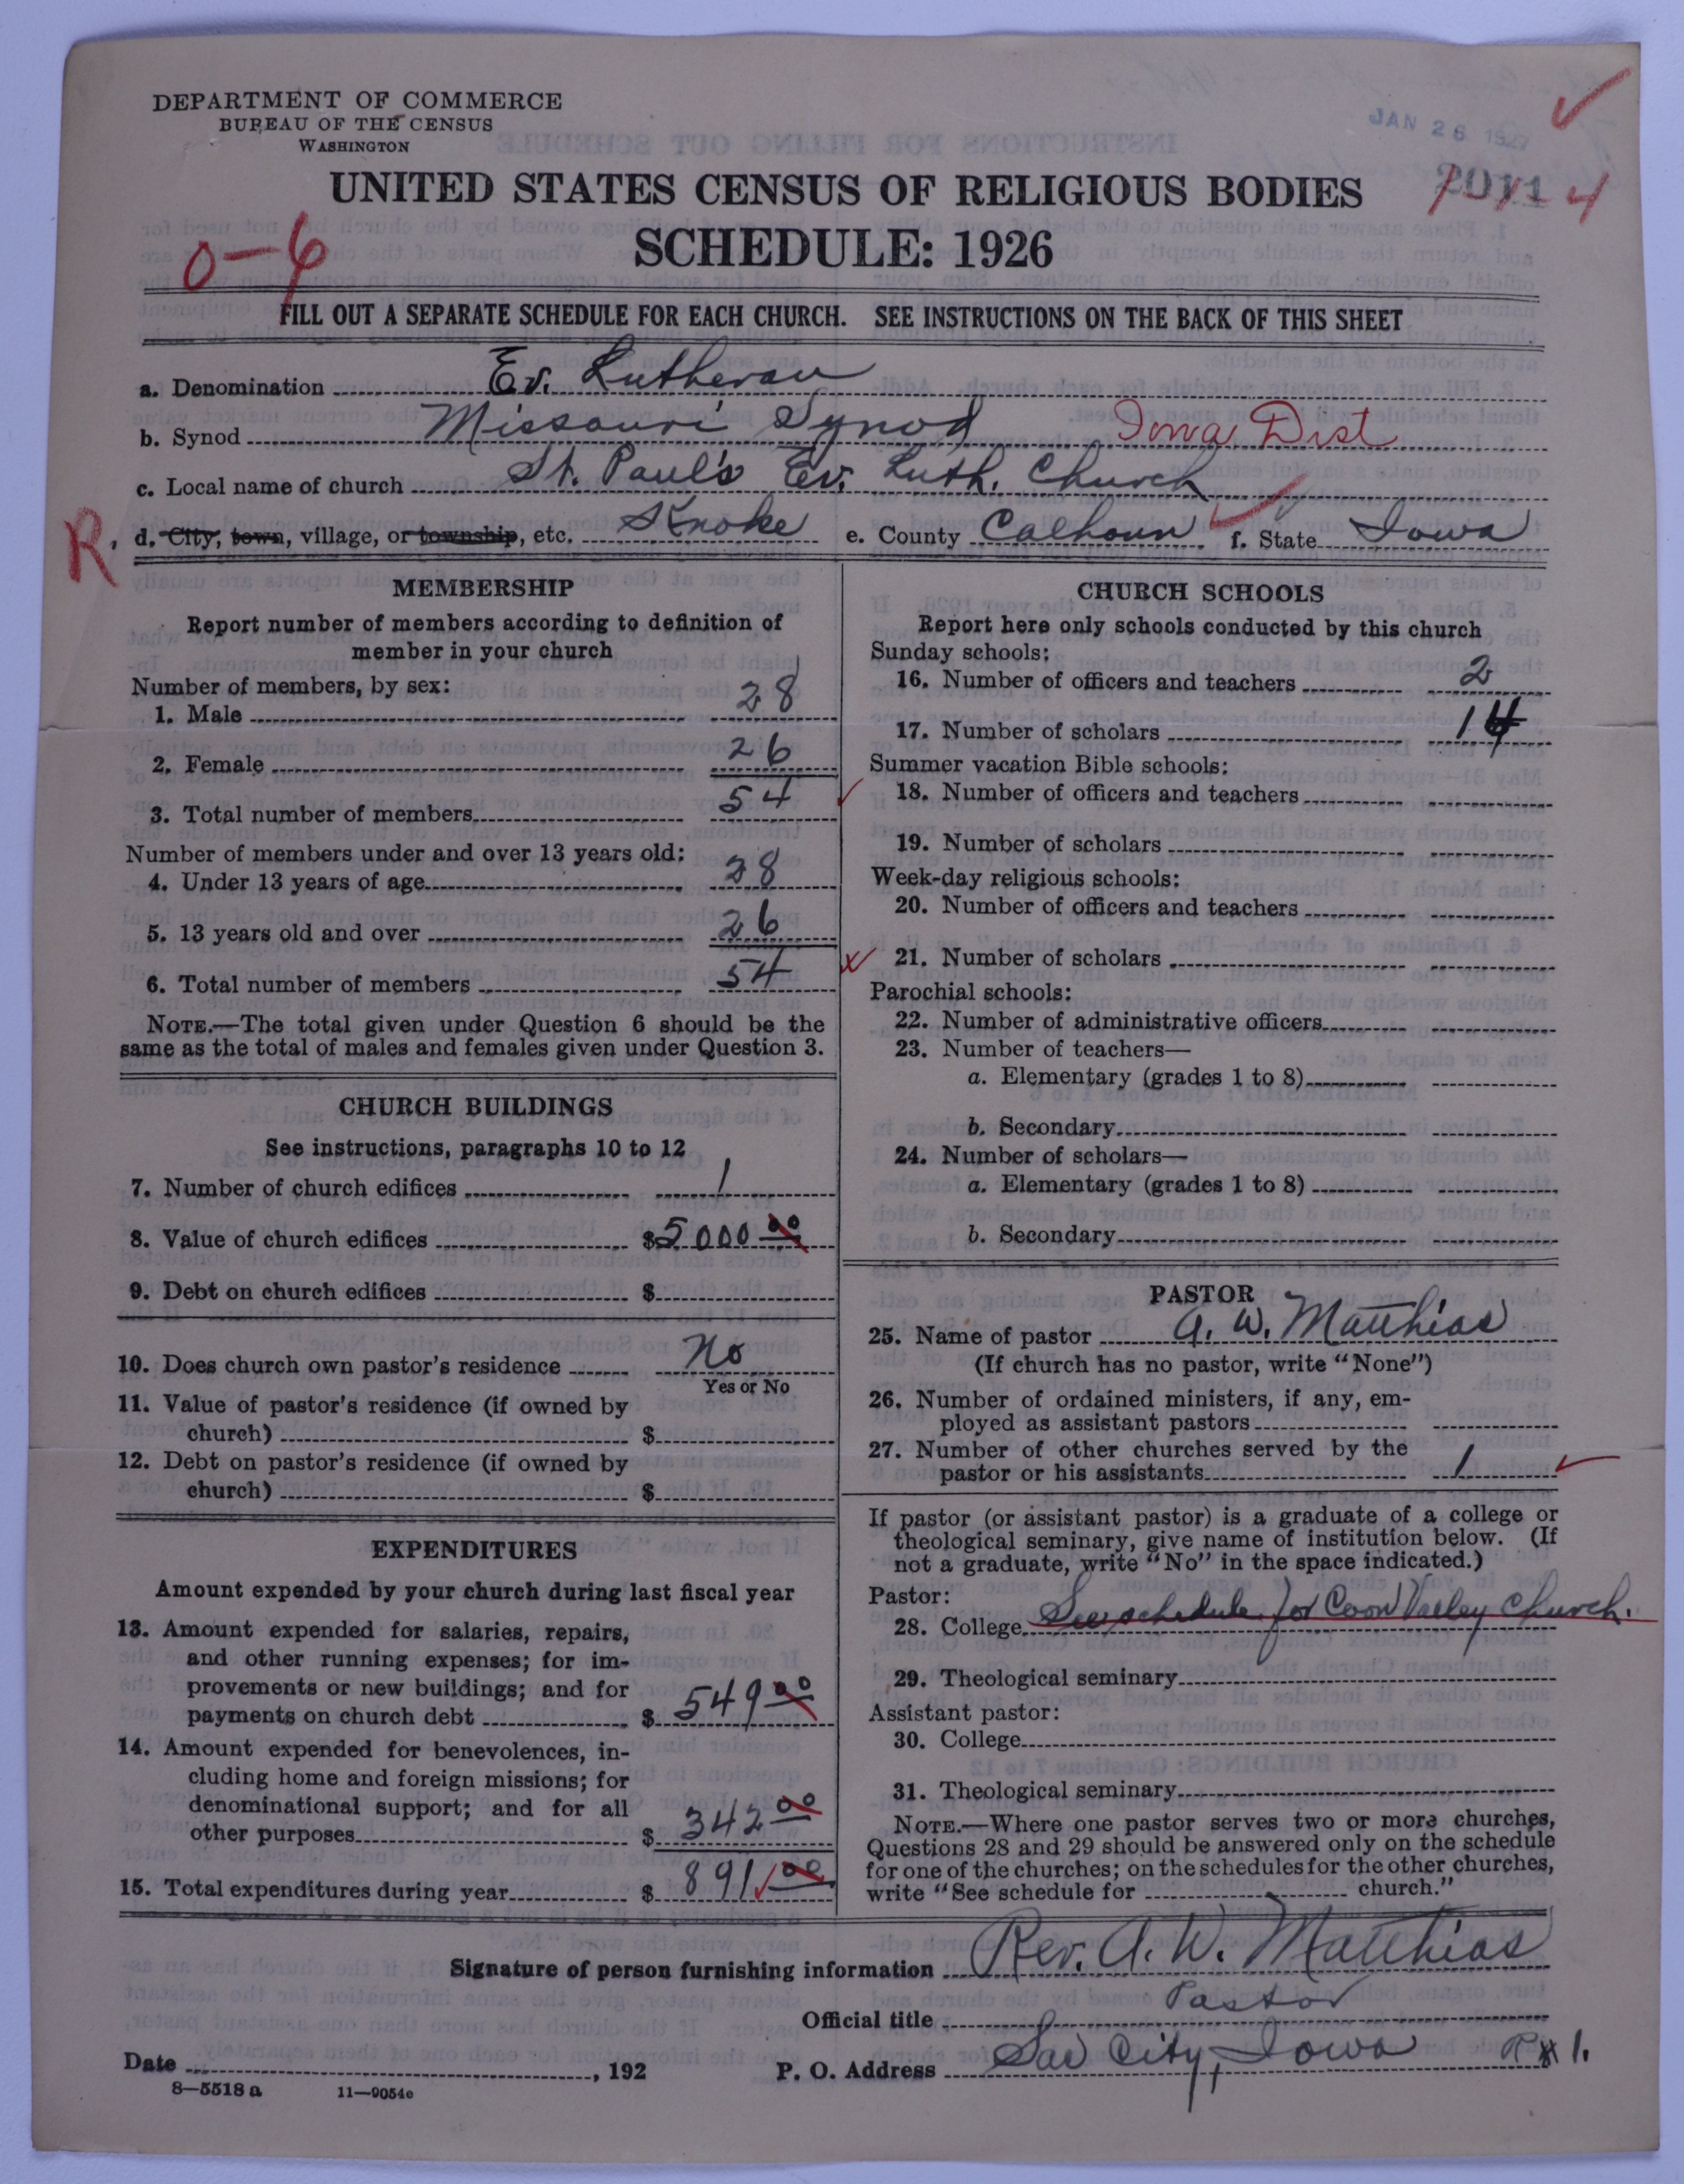 DEPARTMENT OF COMMERCE
BUREAU OF THE CENSUS
WASHINGTON
JAN 26 1927
UNITED STATES CENSUS OF RELIGIOUS BODIES
4
SCHEDULE: 1926
0-6
FILL OUT A SEPARATE SCHEDULE FOR EACH CHURCH. SEE INSTRUCTIONS ON THE BACK OF THIS SHEET
a. Denomination Ev. Lutheran
b. Synod Missouri Synod Iowa Dist
c. Local name of church St. Paul's Ev. Luth. Church
R. d. City, town, village, or township, etc. Knoke e. County Calhoun f. State Iowa
MEMBERSHIP
Report number of members according to definition of
member in your church
Number of members, by sex:
1. Male 28
2. Female 26
3. Total number of members 54
Number of members under and over 13 years old:
4. Under 13 years of age 28
5. 13 years old and over 26
6. Total number of members 54
NOTE.—The total given under Question 6 should be the
same as the total of males and females given under Question 3.
CHURCH BUILDINGS
See instructions, paragraphs 10 to 12
7. Number of church edifices 1
8. Value of church edifices $5000 00
9. Debt on church edifices $
10. Does church own pastor's residence No
Yes or No
11. Value of pastor's residence (if owned by
church) $
12. Debt on pastor's residence (if owned by
church) $
EXPENDITURES
Amount expended by your church during last fiscal year
13. Amount expended for salaries, repairs,
and other running expenses; for im-
provements or new buildings; and for
payments on church debt $ 549 00
14. Amount expended for benevolences, in-
cluding home and foreign missions; for
denominational support; and for all
other purposes $ 342 00
15. Total expenditures during year $ 891 00
CHURCH SCHOOLS
Report here only schools conducted by this church
Sunday schools:
16. Number of officers and teachers 2
17. Number of scholars 14
Summer vacation Bible schools:
18. Number of officers and teachers
19. Number of scholars
Week-day religious schools:
20. Number of officers and teachers
21. Number of scholars
Parochial schools:
22. Number of administrative officers
23. Number of teachers—
a. Elementary (grades 1 to 8)
b. Secondary
24. Number of scholars—
a. Elementary (grades 1 to 8)
b. Secondary
PASTOR
25. Name of pastor A. W. Matthias
(If church has no pastor, write "None")
26. Number of ordained ministers, if any, em-
ployed as assistant pastors
27. Number of other churches served by the
pastor or his assistants 1
If pastor (or assistant pastor) is a graduate of a college or
theological seminary, give name of institution below. (If
not a graduate, write "No" in the space indicated.)
Pastor:
28. College See schedule for Coon Valley Church.
29. Theological seminary
Assistant pastor:
30. College
31. Theological seminary
NOTE.—Where one pastor serves two or more churches,
Questions 28 and 29 should be answered only on the schedule
for one of the churches; on the schedules for the other churches,
write "See schedule for church."
Signature of person furnishing information Rev. A. W. Matthias
Official title Pastor
Date , 192 P. O. Address Sac City, Iowa R # 1.
8—5518 a 11—9054c